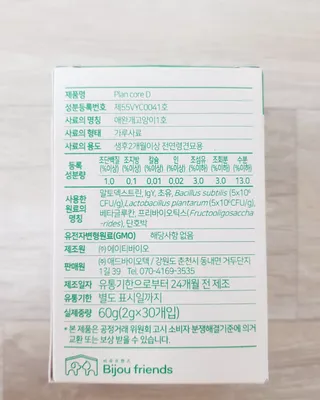 제품명 Plan core D
성분등록번호 제55VYC0041호
사료의 명칭 애완개고양이1호
사료의 형태 가루사료
사료의 용도 생후2개월이상 전연령견묘용
등록성분량
조단백질(%이상) 조지방(%이상) 칼슘(%이상) 인(%이하) 조섬유(%이하) 조회분(%이하) 수분(%이하)
1.0 0.1 0.01 0.02 3.0 3.0 13.0
사용한 원료의 명칭
말토덱스트린, IgY, 초유, Bacillus subtilis (5x10⁶
CFU/g), Lactobacillus plantarum (5x10⁶CFU/g),
베타글루칸, 프리바이오틱스(Fructooligosaccha
-rides), 단호박
유전자변형원료(GMO) 해당사항 없음
제조원 ㈜에이티바이오
판매원 ㈜애드바이오텍 / 강원도 춘천시 동내면 거두단지
1길 39 Tel. 070-4169-3535
제조일자 유통기한으로부터 24개월 전 제조
유통기한 별도 표시일까지
실제중량 60g(2g×30개입)
* 본 제품은 공정거래 위원회 고시 소비자 분쟁해결기준에 의거
교환 또는 보상 받을 수 있습니다.
비쥬프렌즈
Bijou friends